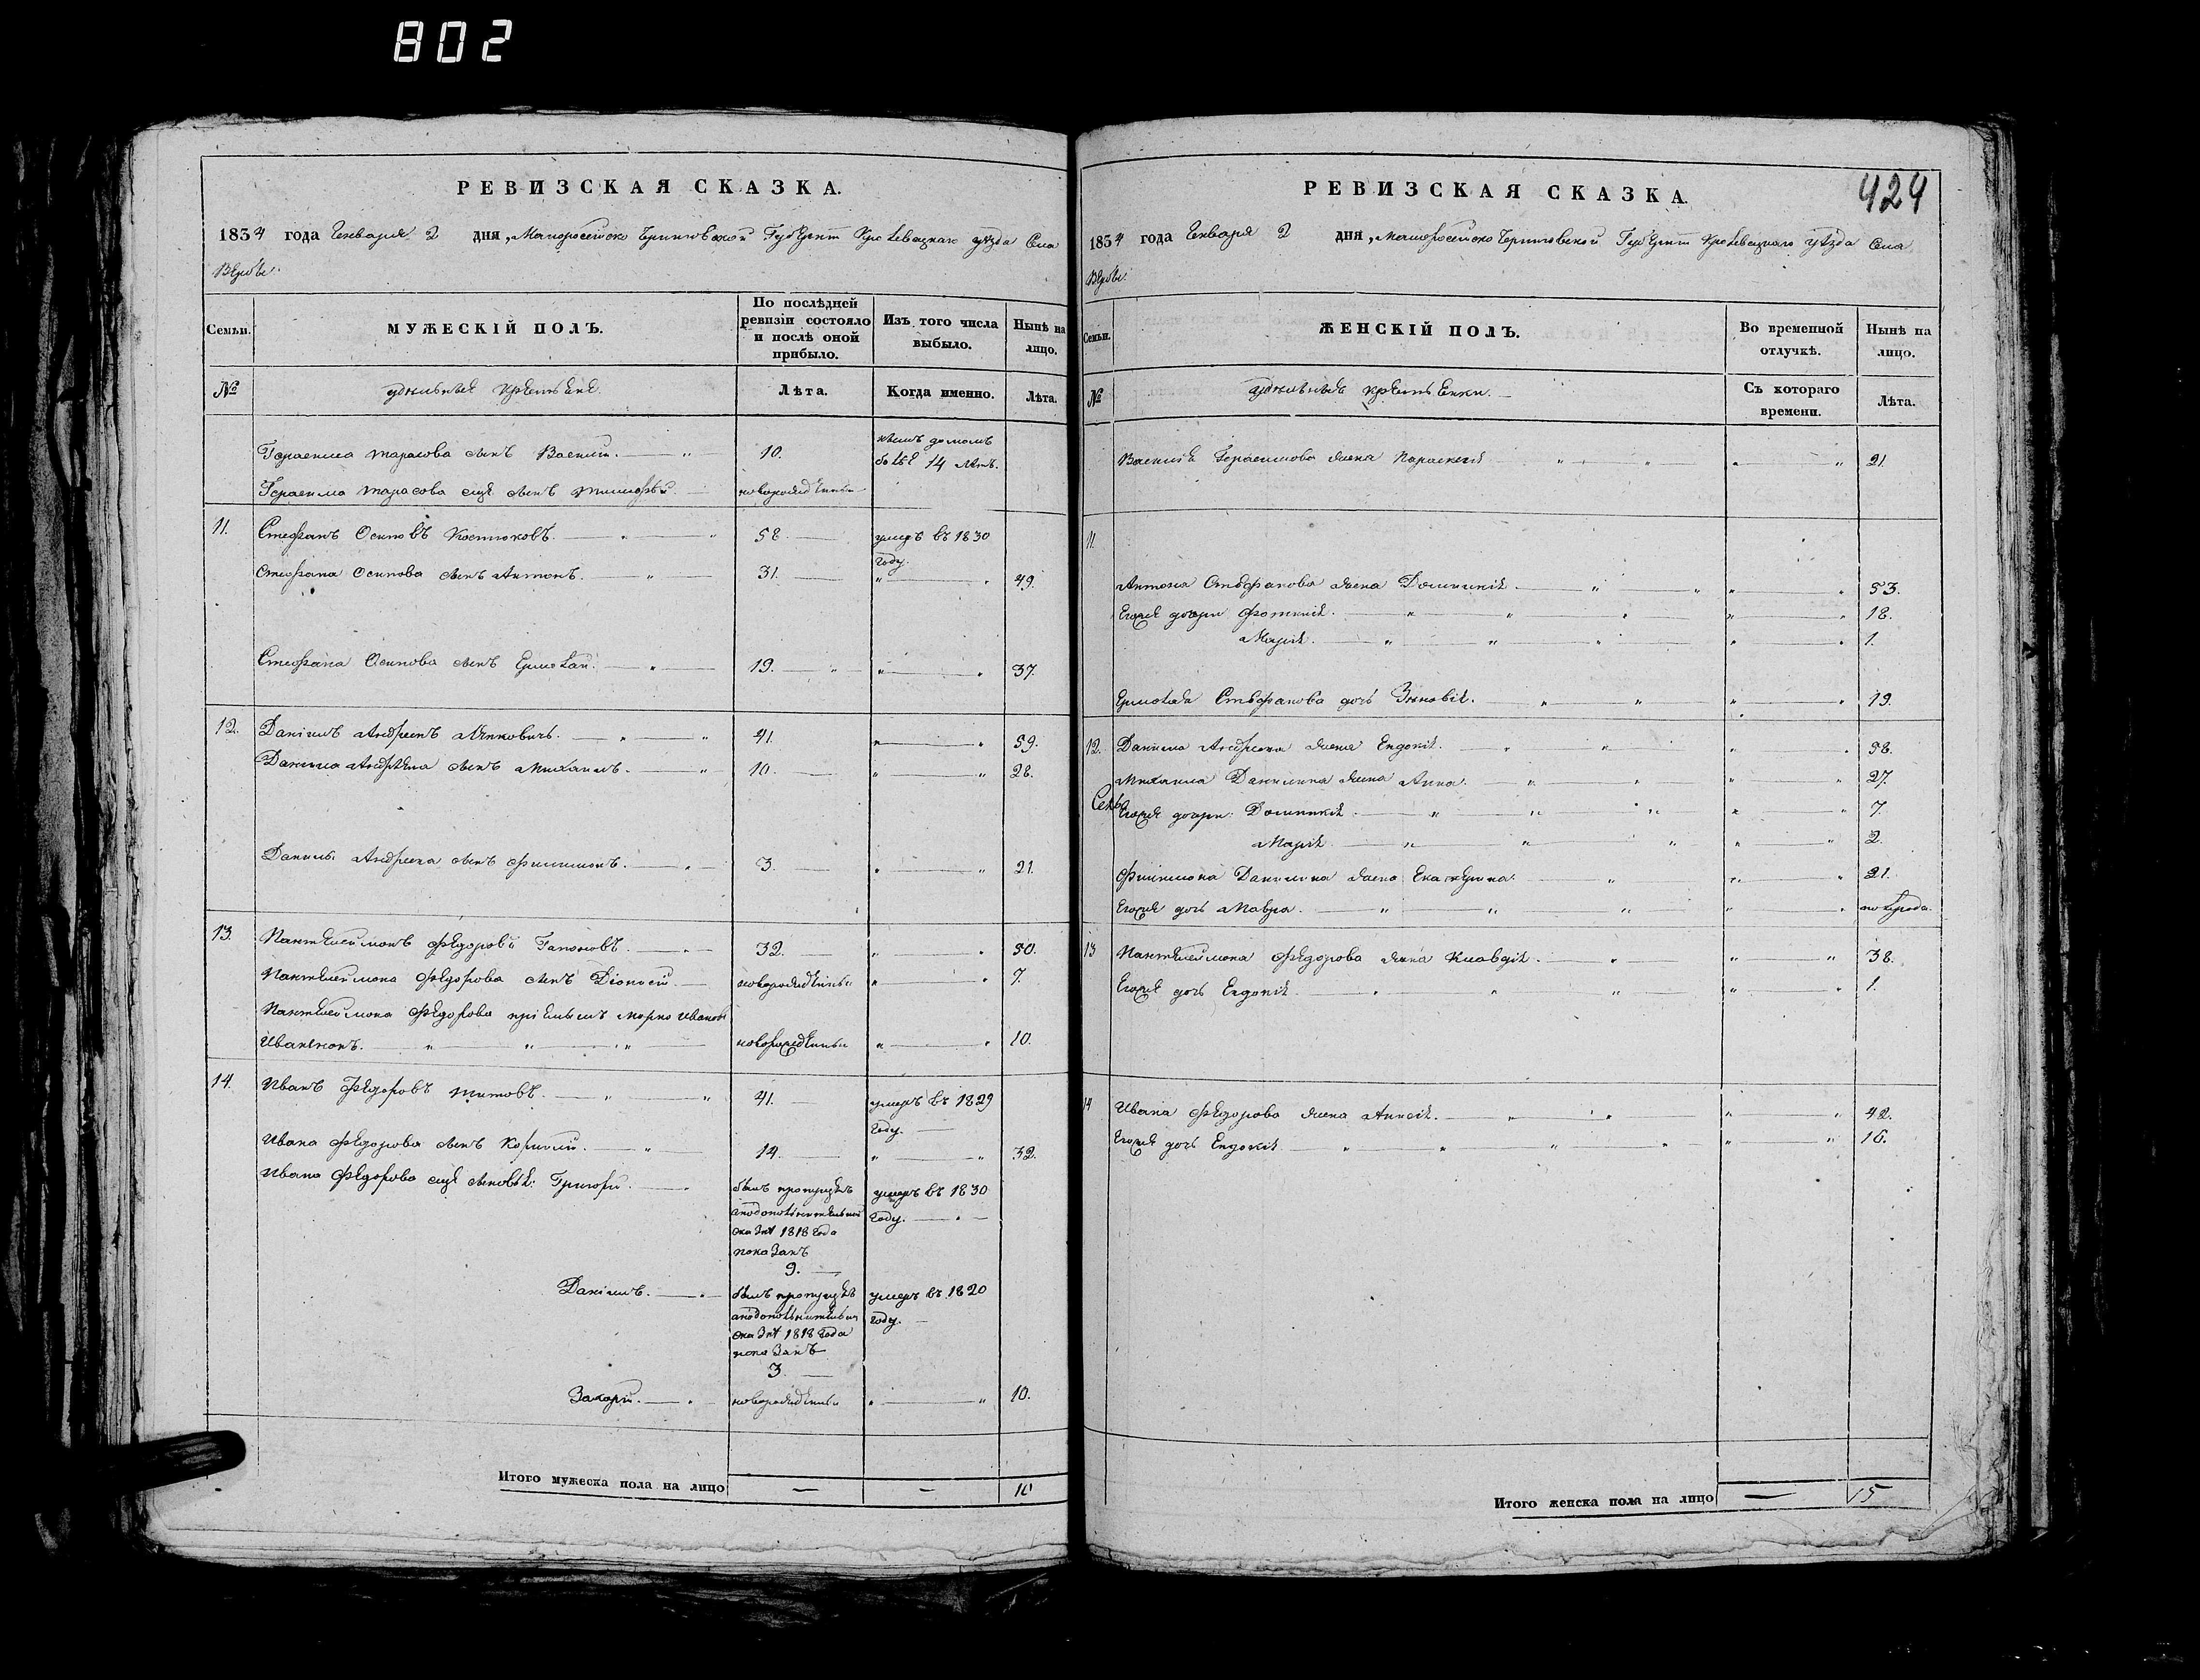 802
РЕВИЗСКАЯ СКАЗКА.
1834 года Генваря 2 дня, Малоросійско Черниговской Губерніи Кролевецкаго уѣзда Села
Вербы.
Семьи.
МУЖЕСКІЙ ПОЛЪ.
По послѣдней ревизіи состояло и послѣ оной прибыло.
Изъ того числа выбыло.
Нынѣ на лицо.
№
удѣльные крестьяне.
Лѣта.
Когда именно.
Лѣта.
Герасима Тарасова сынъ Василій. 10. болѣе 14 лѣтъ.
Герасима Тарасова еще сынъ Тимофѣй новорожденный
11. Стефанъ Осиповъ Костюковъ. 58. умеръ въ 1830 году.
Стефана Осипова сынъ Антонъ. 31. 49.
Стефана Осипова сынъ Ермолай. 19. 37.
12. Даніилъ Андреевъ 41. 59.
Даніила Андреева сынъ Михаилъ. 10. 28.
Данилы Андреева сынъ Филимонъ. 3. 21.
13. Пантелеймонъ Федоровъ Гапоновъ. 32. 50.
Пантелеймона Федорова сынъ Діонисій новорожденный 7.
Пантелеймона Федорова пріемышъ Марко Ивановъ
новорожденный 10.
14. Иванъ Федоровъ Титовъ. 41. умеръ въ 1829 году.
Ивана Федорова сынъ Корнилій. 14. 32.
Ивана Федорова еще сыновья: Григорій. былъ пропущенъ а по дополнительной сказкѣ 1818 года показанъ 9. умеръ въ 1830 году.
Даніилъ. былъ пропущенъ а по дополнительной сказкѣ 1818 года показанъ 3. умеръ въ 1820 году.
Захарій. новорожденный 10.
Итого мужеска пола на лицо — — 10
РЕВИЗСКАЯ СКАЗКА.
424
1834 года Генваря 2 дня, Малоросійско Черниговской Губерніи Кролевецкаго уѣзда Села
Вербы.
Семьи.
ЖЕНСКІЙ ПОЛЪ.
Во временной отлучкѣ.
Нынѣ на лицо.
№
удѣльныя крестьянки.
Съ котораго времени.
Лѣта.
Василія Герасимова жена Параскевія 21.
11.
Антона Стефанова жена Домникія 53.
Егоже дочери Фотинія. 18.
Марія. 1.
Ермолая Стефанова дочь Зиновія. 19.
12. Данила Андреева жена Евдокія. 58.
Михаила Данилина жена Анна. 27.
Егоже дочери: Домникія. 7.
Марія. 2.
Филимона Данилина жена Екатерина. 21.
Егоже дочь Мавра. новорожд.
13 Пантелеймона Федорова жена Клавдія. 38.
Егоже дочь Евдокія. 1.
14 Ивана Федорова жена Анисія. 42.
Егоже дочь Евдокія 16.
Итого женска пола на лицо — 15